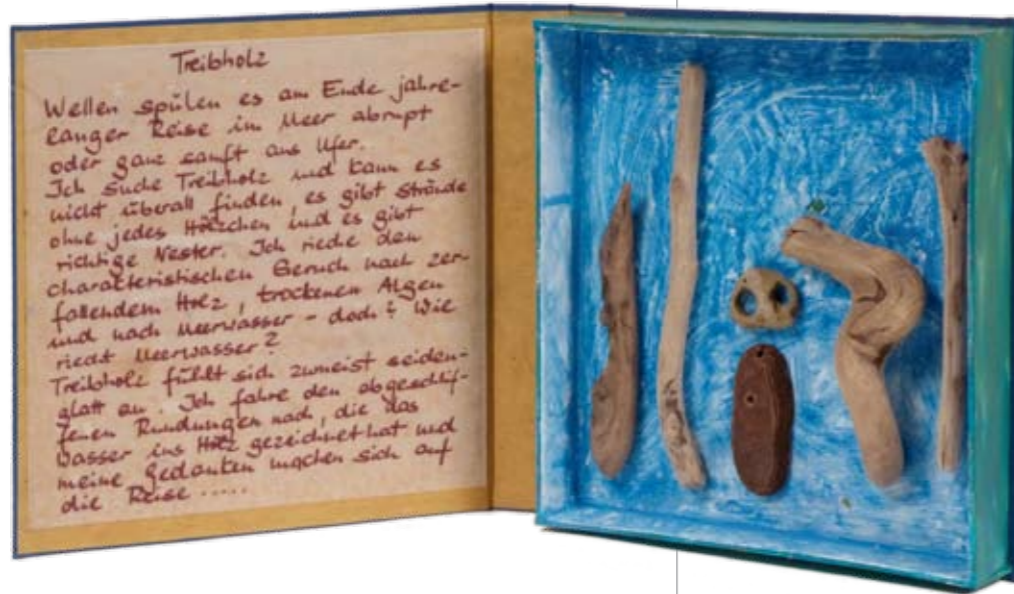 Treibholz
Wellen spülen es am Ende jahre-
langer Reise im Meer abrupt
oder ganz sanft ans Ufer.
Ich suche Treibholz und kann es
nicht überall finden, es gibt Strände
ohne jedes Hölzchen und es gibt
richtige Nester. Ich rieche den
charakteristischen Geruch nach zer-
fallendem Holz, trockenen Algen
und nach Meerwasser - doch: Wie
riecht Meerwasser?
Treibholz fühlt sich zumeist seiden-
glatt an. Ich fahre den abgeschlif-
fenen Rundungen nach, die das
Wasser ins Holz gezeichnet hat und
meine Gedanken machen sich auf
die Reise .....